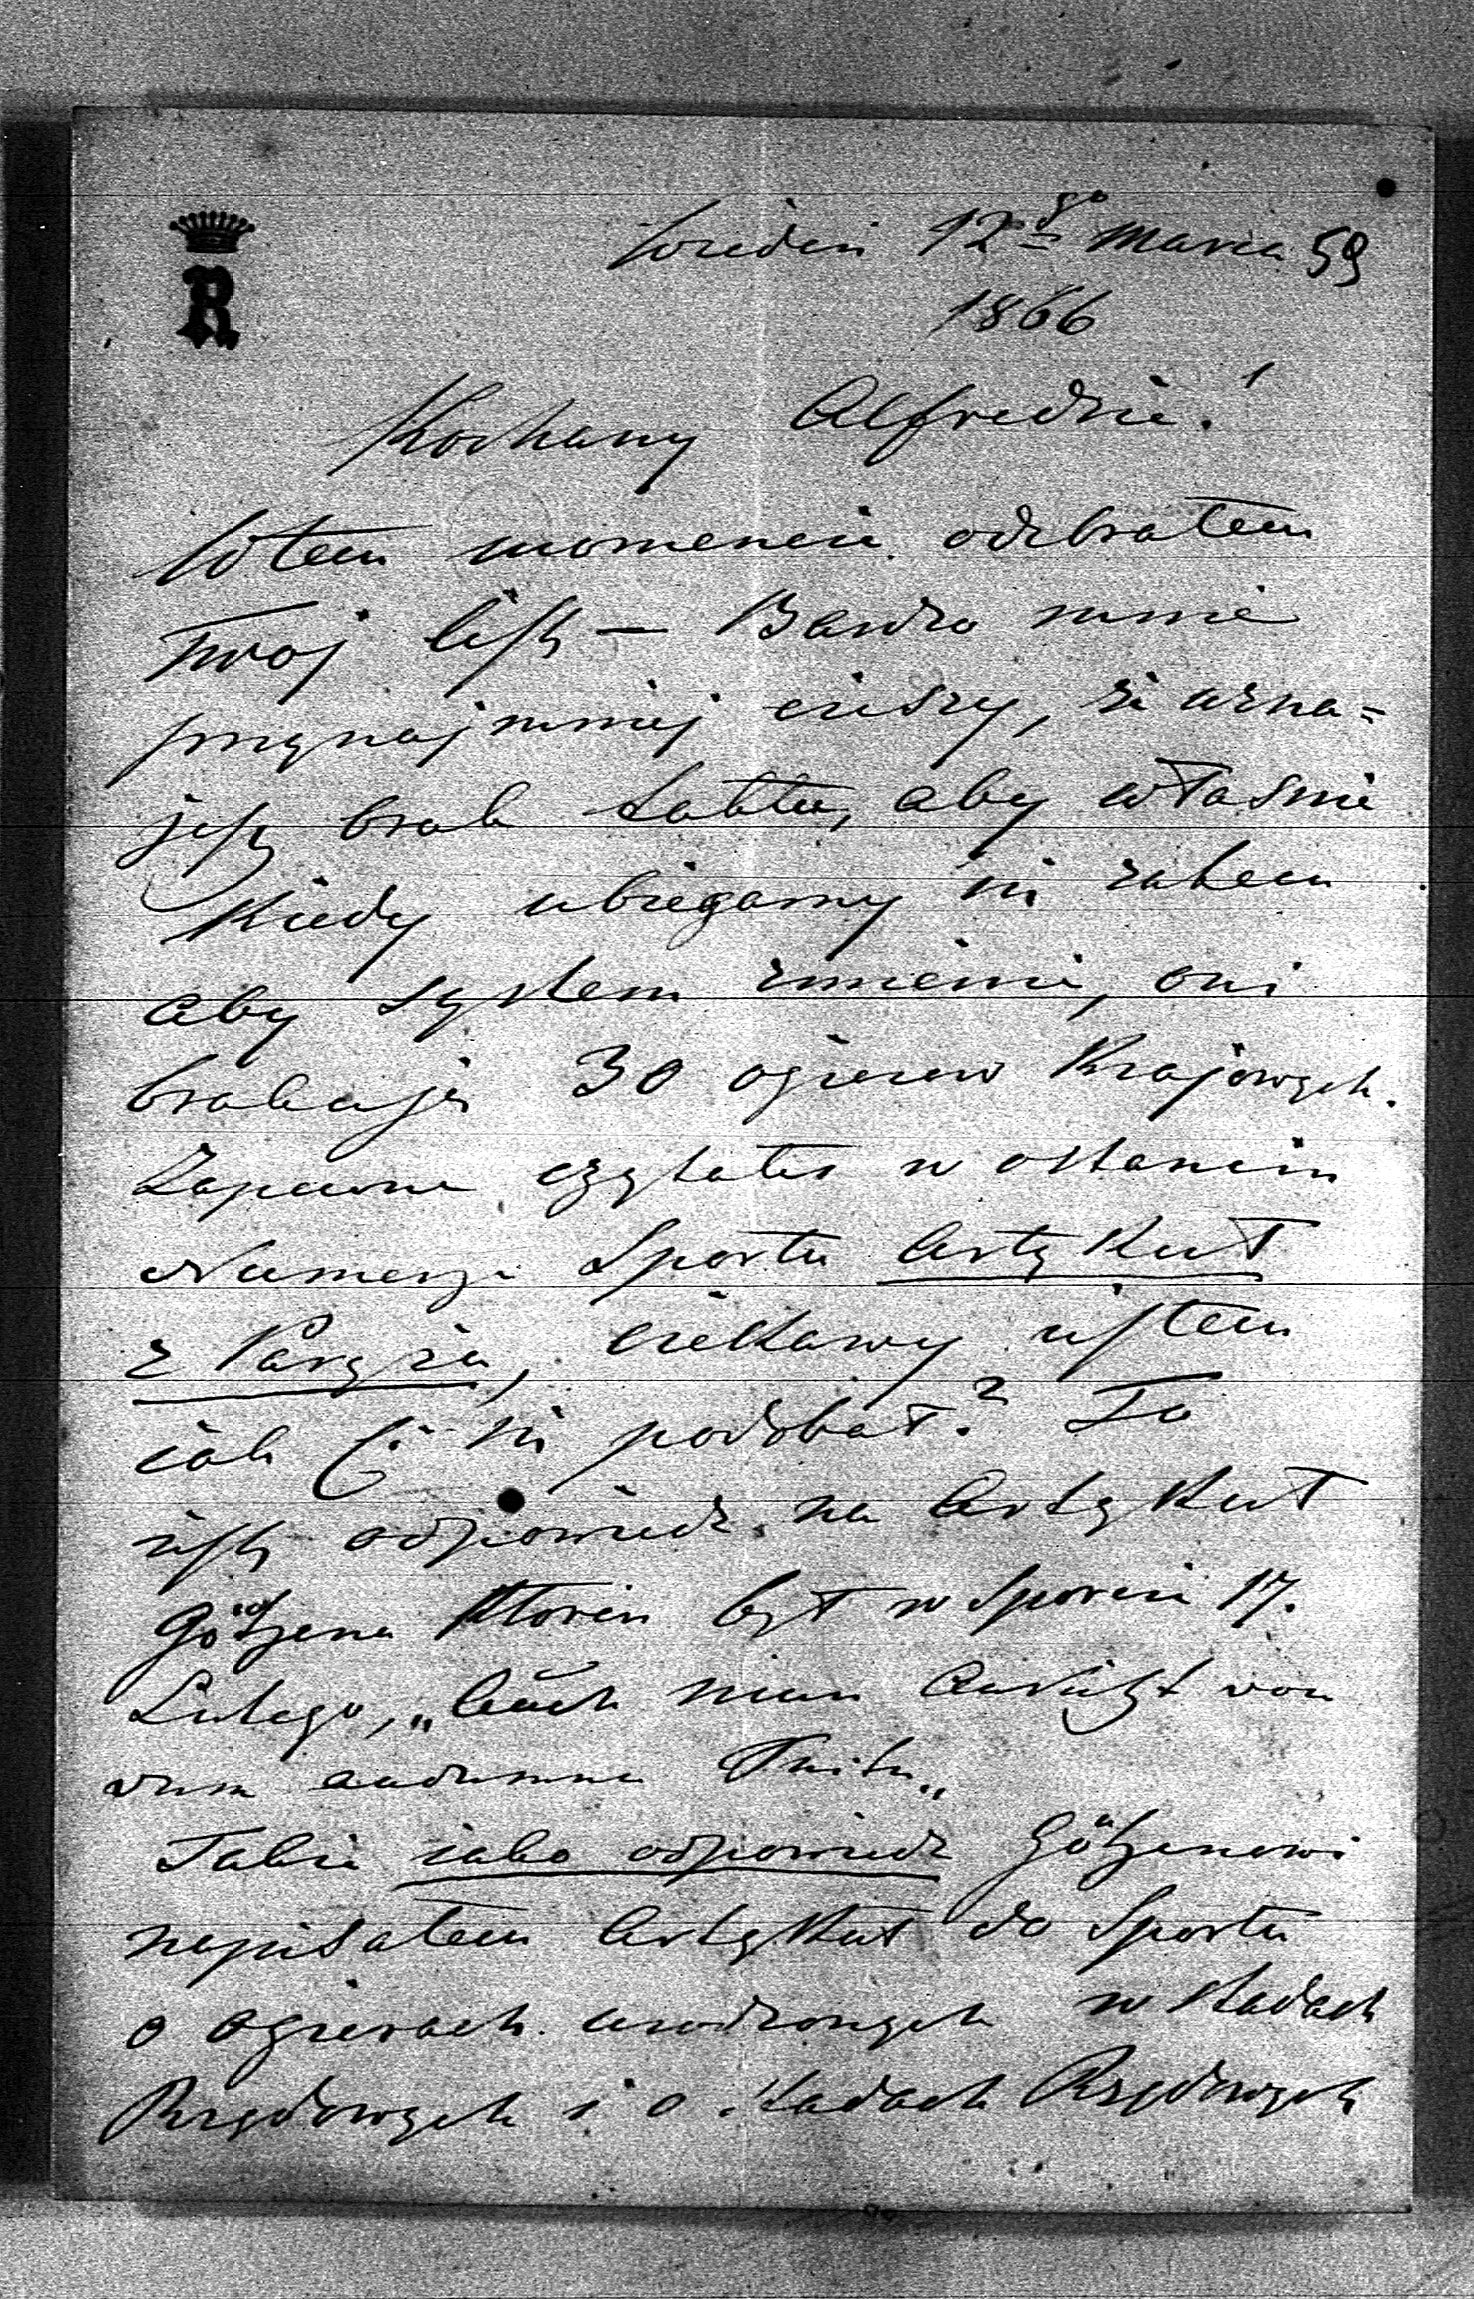 R
Wiedeń 12go Marca 59
1866
Kochany Alfredzie!
W tem momencie odebrałem
Twoj list — Bardzo mnie
przynajmniej cieszy, że uzna=
jesz brak taktu, aby właśnie
Kiedy ubiegamy się zatem
aby system zmienić, oni
brakują 30 ogierow Krajowych.
Zapewne czytałeś w ostanim
Numerze Sportu Artykuł
z Paryża, ciekawy jestem
iak Ci się podobał? To
jest odpowiedz na Artykuł
Götzena Ktoren był w Sporcie 17.
Lutego, „Auch eine Ansicht von
der anderen Seite„
Takie iako odpowiedz Götzenowi
napisałem Artykuł do Sportu
o ogierach urodzonych w stadach
Rządowych i o stadach Rządowych